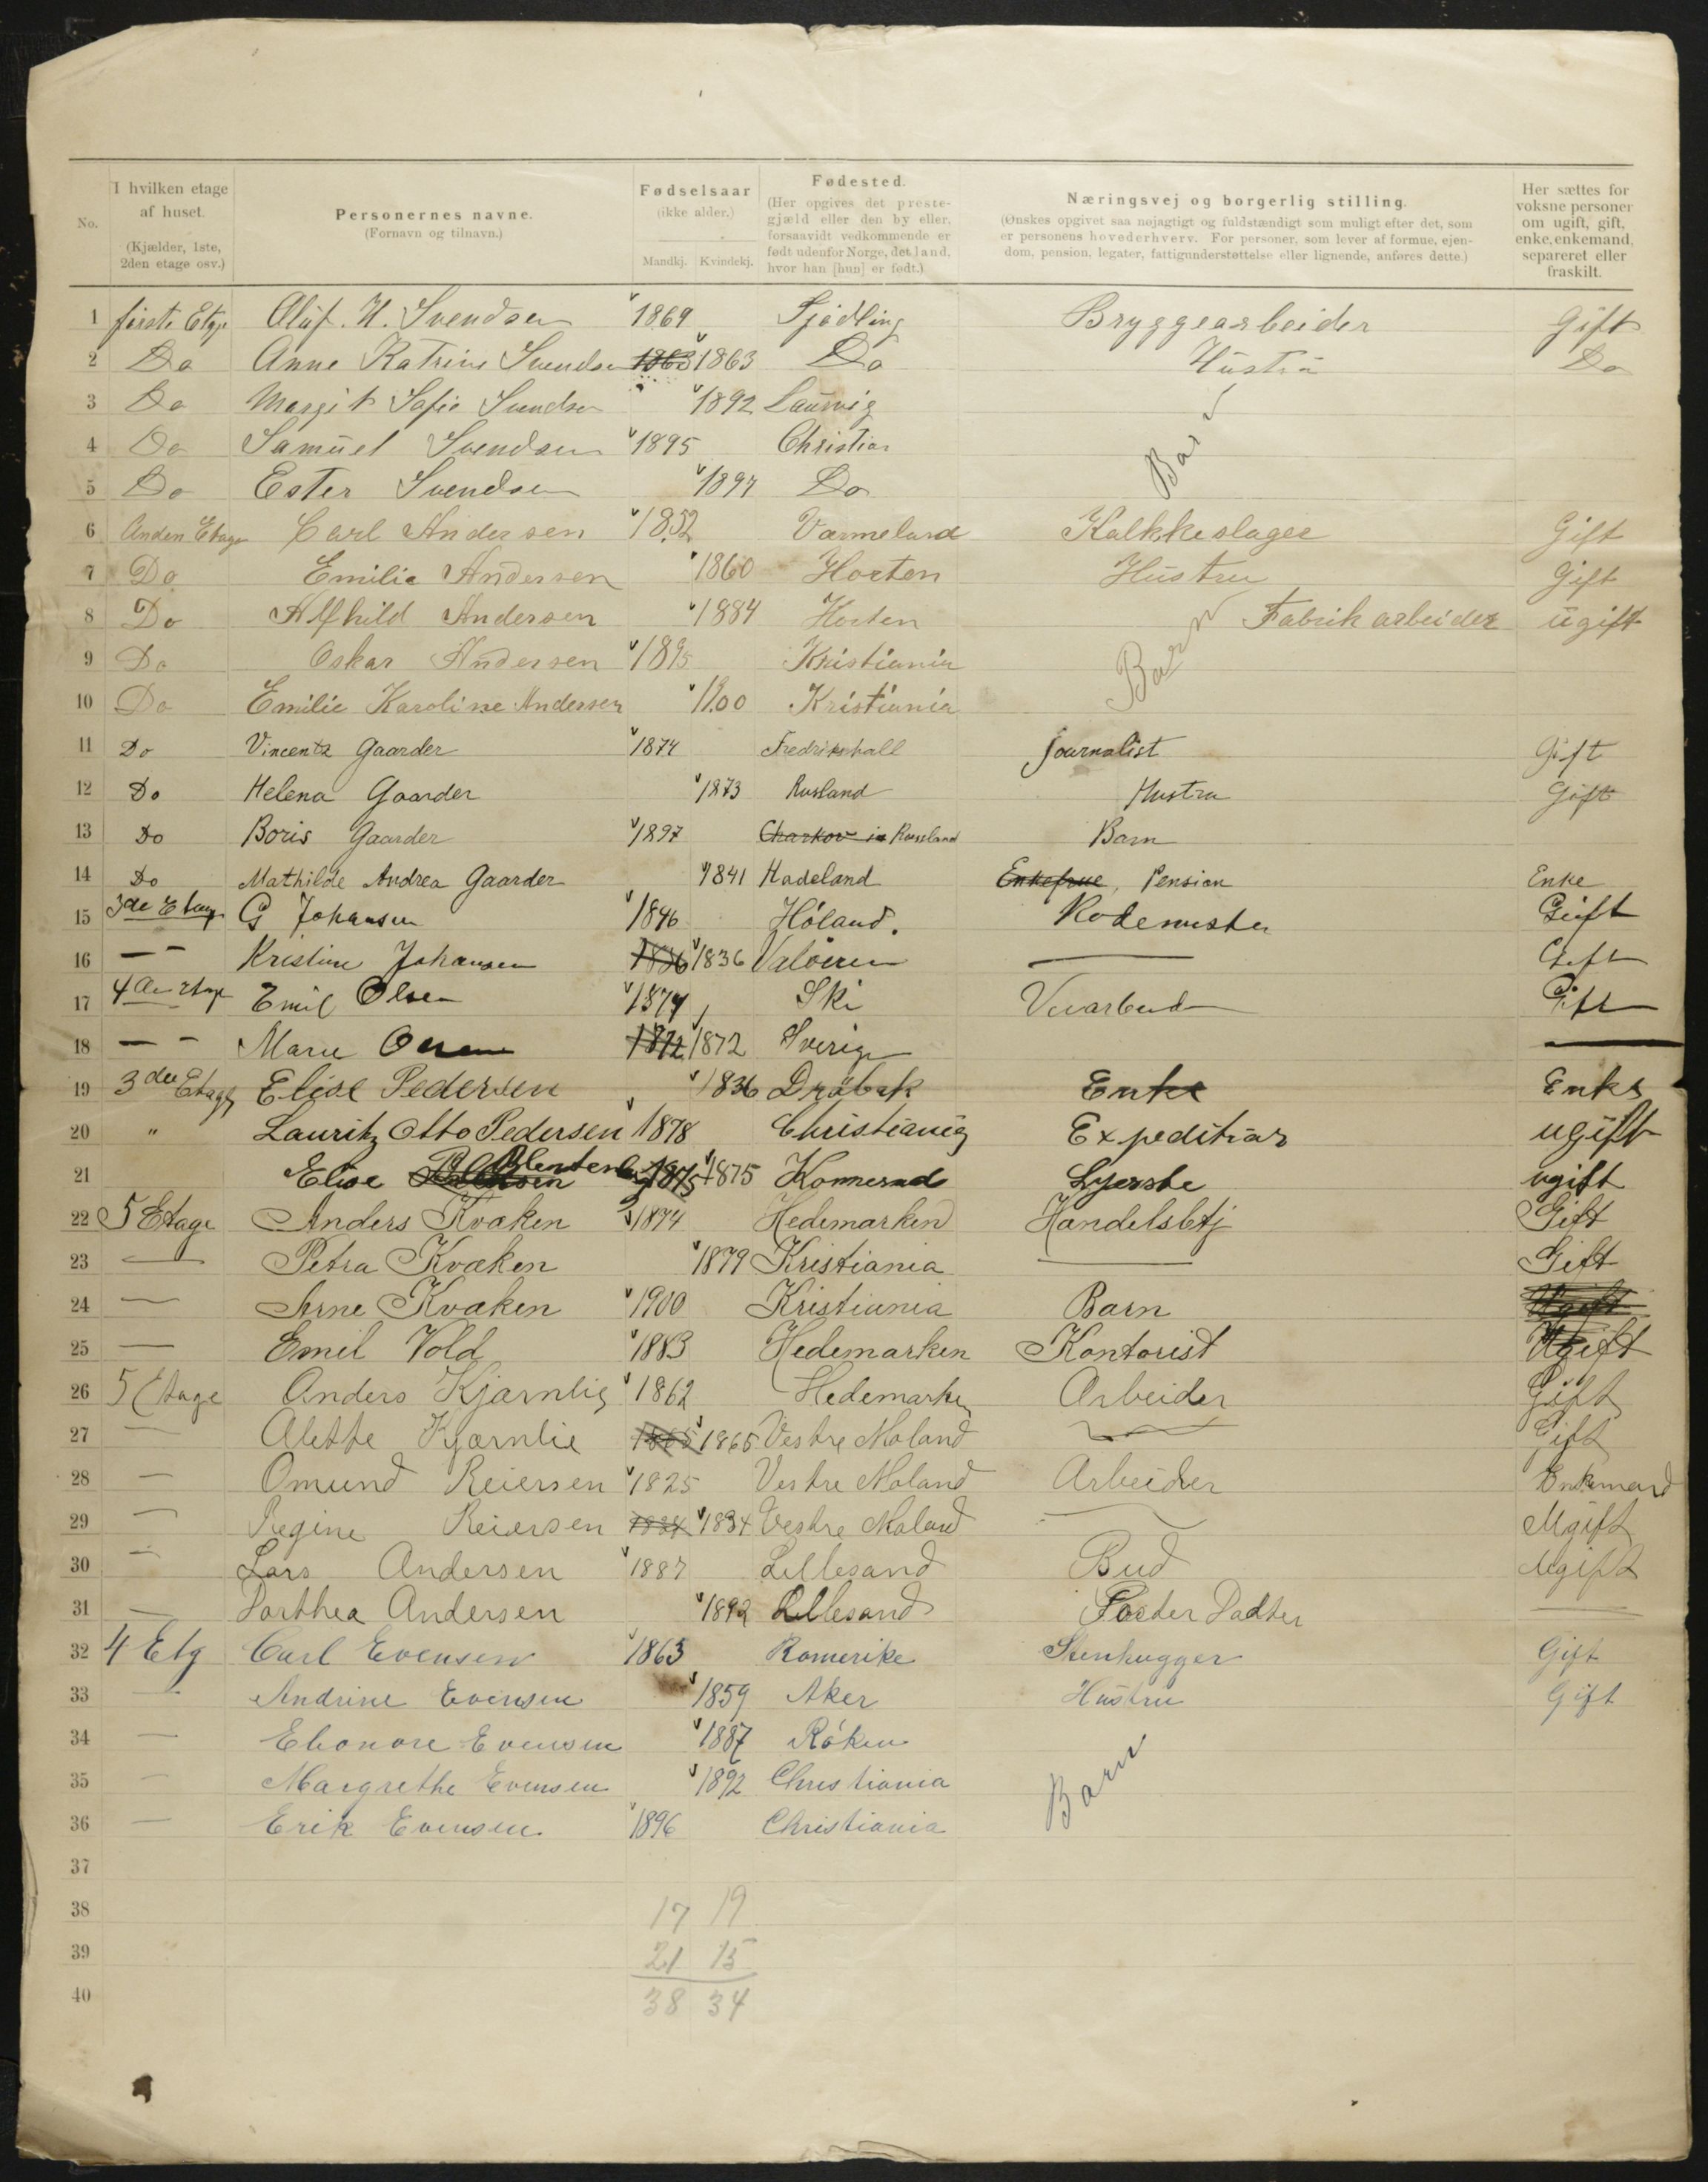 No.
I hvilken etage af huset.
(Kjælder, 1ste, 2den etage osv.)
Personernes navne.
(Fornavn og tilnavn.)
Fødselsaar
(ikke alder.)
Mandkj. Kvindekj.
Fødested.
(Her opgives det preste-
gjæld eller den by eller,
forsaavidt vedkommende er
født udenfor Norge, det land,
hvor han [hun] er født.)
Næringsvej og borgerlig stilling.
(Ønskes opgivet saa nøjagtigt og fuldstændigt som muligt efter det, som
er personens hovederhverv. For personer, som lever af formue, ejen-
dom, pension, legater, fattigunderstøttelse eller lignende, anføres dette.)
Her sættes for
voksne personer
om ugift, gift,
enke, enkemand,
separeret eller
fraskilt.
1 første Etge Oluf. H. Svendsen 1869 Tjødling Bryggearbeider Gift
2 Do Anne Katrine Svendsen 1863 1863 Do Hustru Do
3 Do Margit Sofie Svendsen 1892 Laurvig
4 Do Samuel Svendsen 1895 Christian Barn
5 Do Ester Svendsen 1897 Do
6 Anden Etage Carl Andersen 1852 Varmeland Kalkkeslager Gift
7 Do Emilie Andersen 1860 Horten Hustru Gift
8 Do Alfhild Andersen 1884 Horten Fabrikarbeider ugift
9 Do Oskar Andersen 1895 Kristiania Barn
10 Do Emilie Karoline Andersen 1900 Kristiania
11 Do Vincentz Gaarder 1874 Fredrikshall Journalist Gift
12 Do Helena Gaarder 1873 Rusland Hustru Gift
13 Do Boris Gaarder 1897 Charkov in Russland Barn
14 Do Mathilde Andrea Gaarder 1841 Hadeland Enkefrue, Pension Enke
15 3de Etage G Johansen 1846 Høland. Rodemester Gift
16 — - Kristine Johansen 1836 1836 Valøeren — Gift
17 4de Etage Emil Olsen 1874 Ski Gift
18 — - Marie Olsen 1872 1872 Sverige —
19 3de Etage Elise Pedersen 1836 Drøbak Enke Enke
20 " Lauritz Otto Pedersen 1878 Christiania Expeditiør ugift
21 Elise 1875 1875 Komnerud Syerske ugift
22 5 Etage Anders Kvaken 1874 Hedemarken Handelsbtj Gift
23 — Petra Kvaken 1879 Kristiania — Gift
24 — Arne Kvaken 1900 Kristiania Barn Ugift
25 — Emil Vold 1883 Hedemarken Kontorist Ugift
26 5 Etage Anders Kjærnlie 1862 Hedemarken Arbeider Gift
27 — Alette Kjærnlie 1865 1865 Vestre Moland — Gift
28 — Omund Reiersen 1825 Vestre Moland Arbeider Enkemand
29 — Regine Reiersen 1834 1834 Vestre Moland — Ugift
30 — Lars Andersen 1887 Lillesand Bud Ugift
31 — Dorthea Andersen 1892 Lillesand Foster Dadter —
32 4 Etg Carl Evensen 1863 Romerike Stenhugger Gift
33 — Andrine Evensen 1859 Aker Hustru Gift
34 — Elonore Evensen 1887 Røken
35 — Margrethe Evensen 1892 Christiania Barn
36 — Erik Evensen 1896 Christiania
37
38 17 19
39 21 15
40 38 34